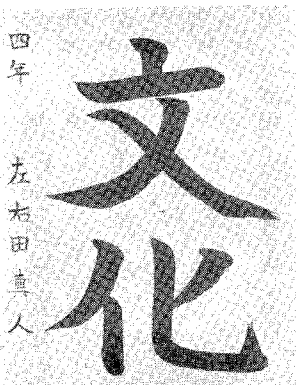 文化
四年 左右田真人